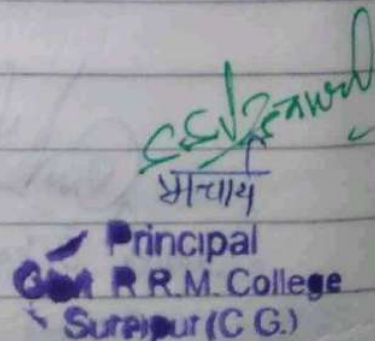 प्राचार्य
Principal
Govt R.R.M. College
Surajpur (C.G.)